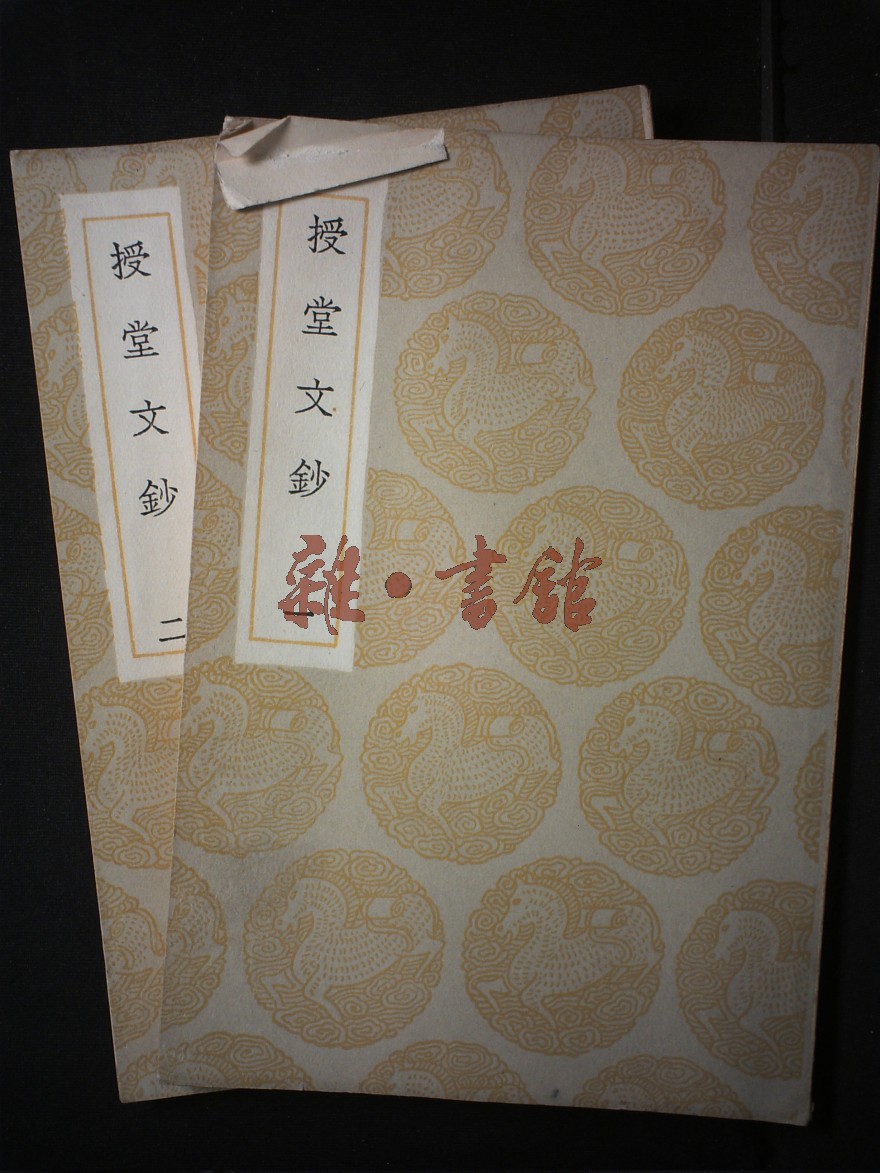 授堂文鈔
一
授堂文鈔
二
雜·書館